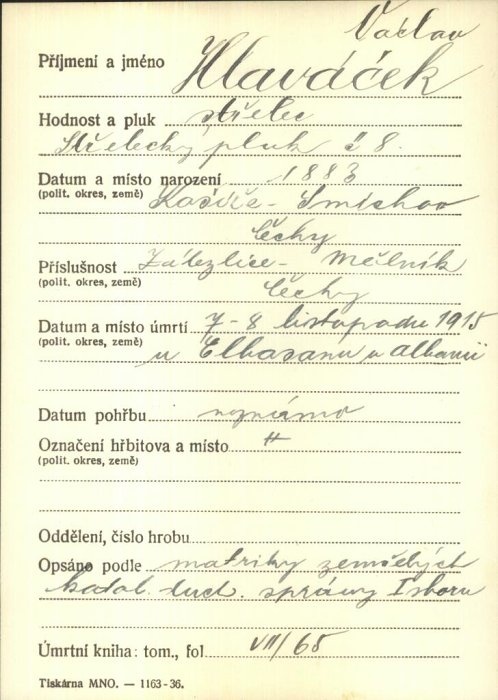 Václav
Příjmení a jméno Hlaváček
Hodnost a pluk střelec
Střelecký pluk č 8.
Datum a místo narození 1883
(polit. okres, země) Košíře - Smíchov
Čechy
Příslušnost Zálezlice - Mělník
(polit. okres, země) Čechy
Datum a místo úmrtí 7-8 listopadu 1915
(polit. okres, země) u Elbasanu v Albanii
Datum pohřbu neznámo
Označení hřbitova a místo "
(polit. okres, země)
Oddělení, číslo hrobu
Opsáno podle matriky zemřelých
katol. duch. správy I sboru
Úmrtní kniha: tom., fol. VII/65
Tiskárna MNO. — 1163-36.